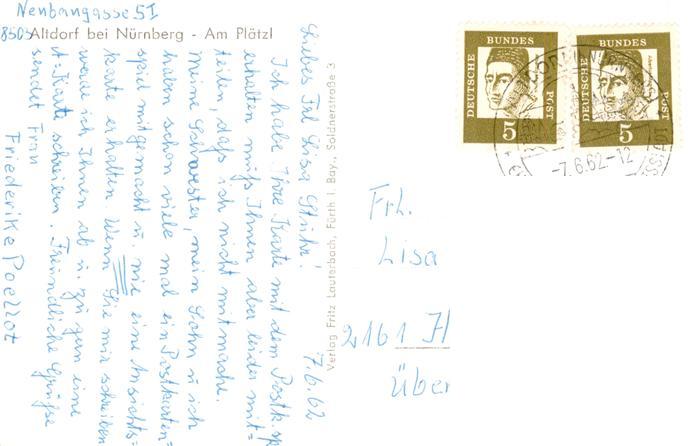 Neubaugasse 5 I
8503 Altdorf bei Nürnberg - Am Plätzl
7.6.62
Liebes Frl Lisa
Ich habe Ihre Karte mit dem Postk. sp
erhalten muß Ihnen aber leider mit=
teilen, daß ich nicht mitmache.
Meine Schwester, mein Sohn u ich
haben schon viele mal ein Postkarten=
spiel mitgemacht u. nie eine Ansichts=
karte erhalten Wenn Sie mir schreiben
werde ich Ihnen ab u. zu gern eine
A=Karte schreiben. Freundliche Grüße
sendet Frau
Friederike Poellot
Verlag Fritz Lauterbach, Fürth i. Bay., Soldnerstraße 3
DEUTSCHE BUNDES POST
5
DEUTSCHE BUNDES POST
5
-7.6.62-12
Frl.
Lisa
2161 H
Über